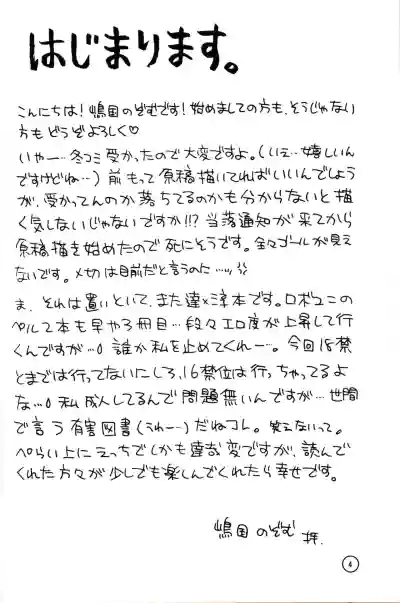 はじまります。
こんにちは!嶋国のぞむです!始めましての方も、そうじゃない
方もどうぞよろしく♡
いやー…冬コミ受かったので大変ですよ。(いえ…嬉しいん
ですけどね…)前もって原稿描いてればいいんでしょう
が、受かってんのか落ちてるのかも分からないと描
く気しないじゃないですか!!?当落通知が来てから
原稿描き始めたので死にそうです。全々ゴールが見え
ないです。〆切は目前だと言うのに…ッ
ま、それは置いといて、また達×淳本です。ロボユニの
ペルソナ2本も早や3冊目…段々エロ度が上昇して行
くんですが…。誰か私を止めてくれー。今回18禁
とまでは行ってないにしろ、16禁位は行っちゃってるよ
な…。私成人してるんで問題無いんですが…世間
で言う有害図書(うわー…)だねコレ。笑えないって。
ぺらい上にえっちでしかも達哉変ですが、読んで
くれた方々が少しでも楽しんでくれたら幸せです。
嶋国のぞむ 拝.
4